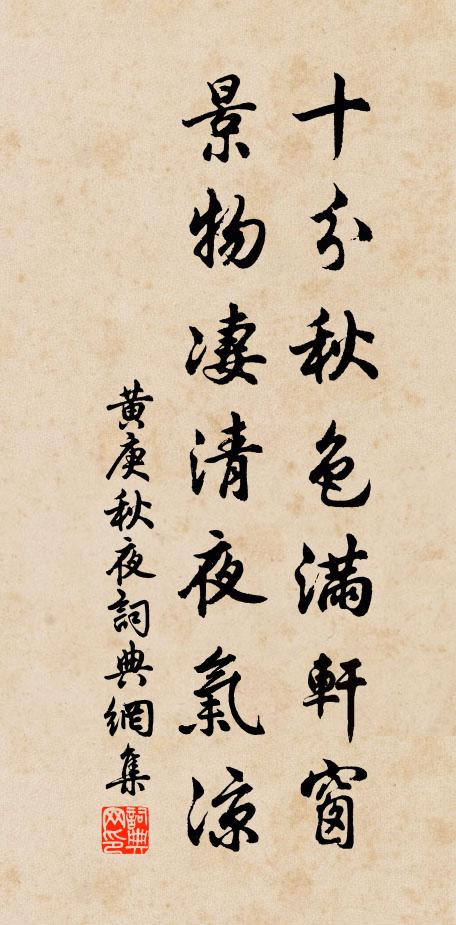 十分秋色滿軒窗
景物凄清夜氣涼
黃庚秋夜詞典網集
詞典網印